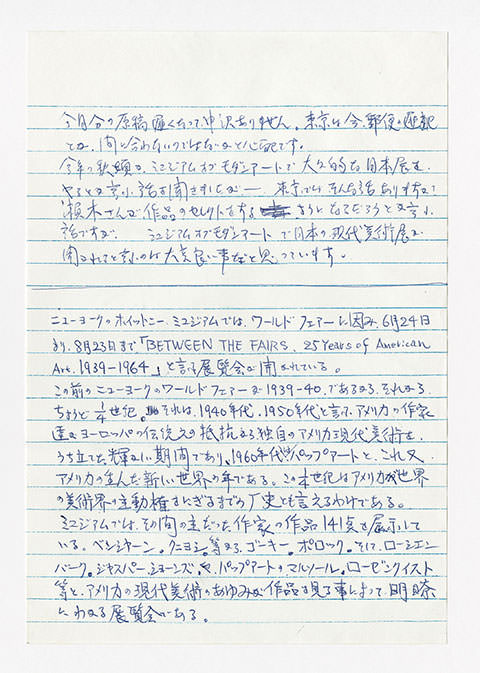 今月分の原稿遅くなって申訳ありません。東京は今、郵便の遅配
とか、間に合わないのではないかと心配です。
今年の秋頃か、ミュジアムオブモダンアートで大々的な日本展を
やるとか言う話を聞きましたが— 東京でもそんな話ありますか?
瀬木さんが作品のセレクトをする ようになるだろうと言う
話ですが、 ミュジアムオブモダンアートで日本の現代美術展が
開かれると言うのは大変良い事だと思っています。
ニューヨークのホイットニーミュジアムでは、ワールドフェアーに因み、6月24日
より、8月23日まで「BETWEEN THE FAIRS、25 Years of American
Art. 1939-1964」と言う展覧会が開かれている。
この前のニューヨークのワールドフェアーが1939-40、であるから、それから
ちょうど1/4世紀。それは、1940年代、1950年代と言って、アメリカの作家
達が、ヨーロッパの伝統えの抵抗から独自のアメリカ現代美術を
うち立てた輝しい期間であり、1960年代はパップアートと、これ又
アメリカの生んだ新しい世界の年である。この1/4世紀はアメリカが世界
の美術界の主動権をにぎるまでの歴史とも言えるわけである。
ミュジアムでは、その間の主だった作家の作品141点を展示して
いる。ベンシャーン。クニヨシ。等から、ゴーキー。ポロック。そして、ローシェン
バーク。ジャスパー・ジョーンズ。や、パップアートのマルソール。ローゼンクイスト
等と、アメリカの現代美術のあゆみが作品を見る事によって、明瞭
にわかる展覧会である。